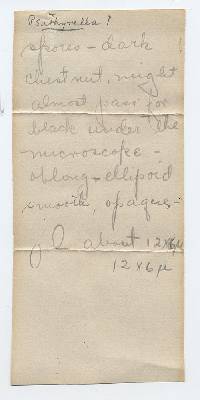 Psathyrella?
spores - dark
chestnut, might
almost pass for
black under the
microscope -
oblong-ellipoid
smooth, opaque -
about 12x6µ
12 x 6 µ